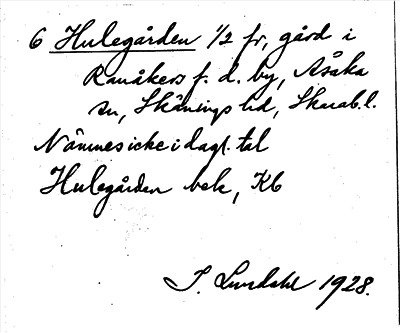 6 Hulegården 1/2 fr, gård i
Ranåkers f. d. by, Åsaka
sn, Skånings hd, Skarab.l.
Nämnes icke i dagl. tal
Hulegården bek, K6
I. Lundahl 1928.